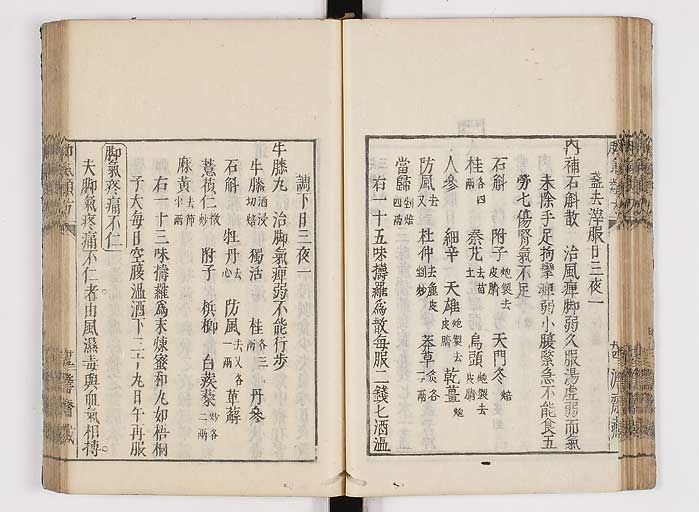 盞去滓服日三夜一
內補石斛散 治風痺脚弱久服湯虛弱而氣
未除手足拘攣痺弱小腹緊急不能食五
勞七傷腎氣不足
石斛 附子炮製去皮臍 天門冬焙
桂各四 秦艽去苗土 烏頭炮製去皮臍
人參 細辛 天雄炮製去皮臍 乾薑炮
防風去又 杜仲去麁皮剉炒 莽草炙各二兩
當歸剉焙四兩
右一十五味擣羅爲散每服二錢七酒溫
調下日三夜一
牛膝丸 治脚氣痺弱不能行步
牛膝酒浸切焙 獨活 桂各三 丹參
石斛去 牡丹去心 防風去叉各一兩 萆薢
薏苡仁微炒 附子 檳榔 白蒺藜炒各二兩
麻黃去節半兩
右一十三味擣羅爲末煉蜜和丸如梧桐
子大每日空腹溫酒下三二十九日午再服
脚氣疼痛不仁
夫脚氣疼痛不仁者由風濕毒與血氣相搏